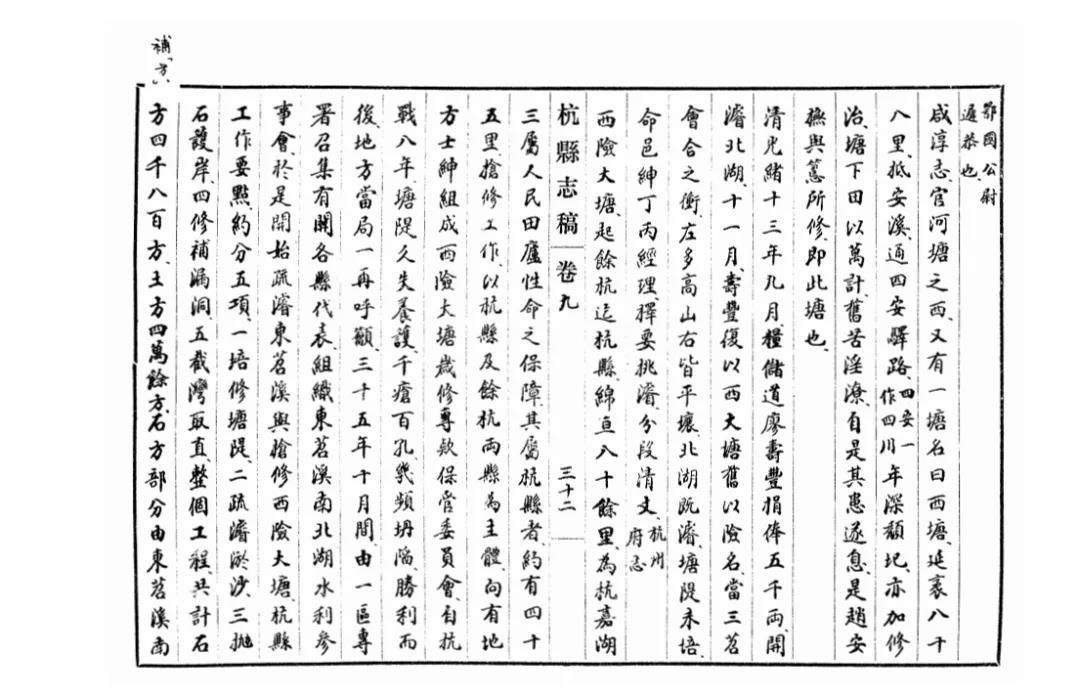 鄂國公尉
遲恭也、
咸淳志、官河塘之西、又有一塘名曰西塘、延袤八十
八里、抵安溪、通四安驛路、四安一作四川年深頹圮、亦加修
治、塘下田以萬計、舊苦淫潦、自是其患遂息、是趙安
撫與𥲤所修、即此塘也、
清光緒十三年九月、糧儲道廖壽豐捐俸五千兩、開
濬北湖、十一月、壽豐復以西大塘舊以險名、當三苕
會合之衝、左多高山、右皆平壤、北湖既濬、塘隄未培、
命邑紳丁丙經理、擇要挑濬、分段清丈、杭州府志
西險大塘、起餘杭迄杭縣、綿亘八十餘里、為杭嘉湖
杭縣志稿 卷九 三十二
三屬人民田廬性命之保障、其屬杭縣者、約有四十
五里、搶修工作、以杭縣及餘杭兩縣為主體、向有地
方士紳組成西險大塘歲修專欵保管委員會、自抗
戰八年、塘隄久失養護、千瘡百孔、幾頻坍陷、勝利而
後、地方當局、一再呼籲、三十五年十月間、由一區專
署召集有關各縣代表、組織東苕溪南北湖水利參
事會、於是開始疏濬東苕溪、與搶修西險大塘、杭縣
工作要點、約分五項、一培修塘隄、二疏濬淤沙、三拋
石護岸、四修補漏洞、五截灣取直、整個工程、共計石
方四千八百方、土方四萬餘方、石方部分、由東苕溪南
補「方」